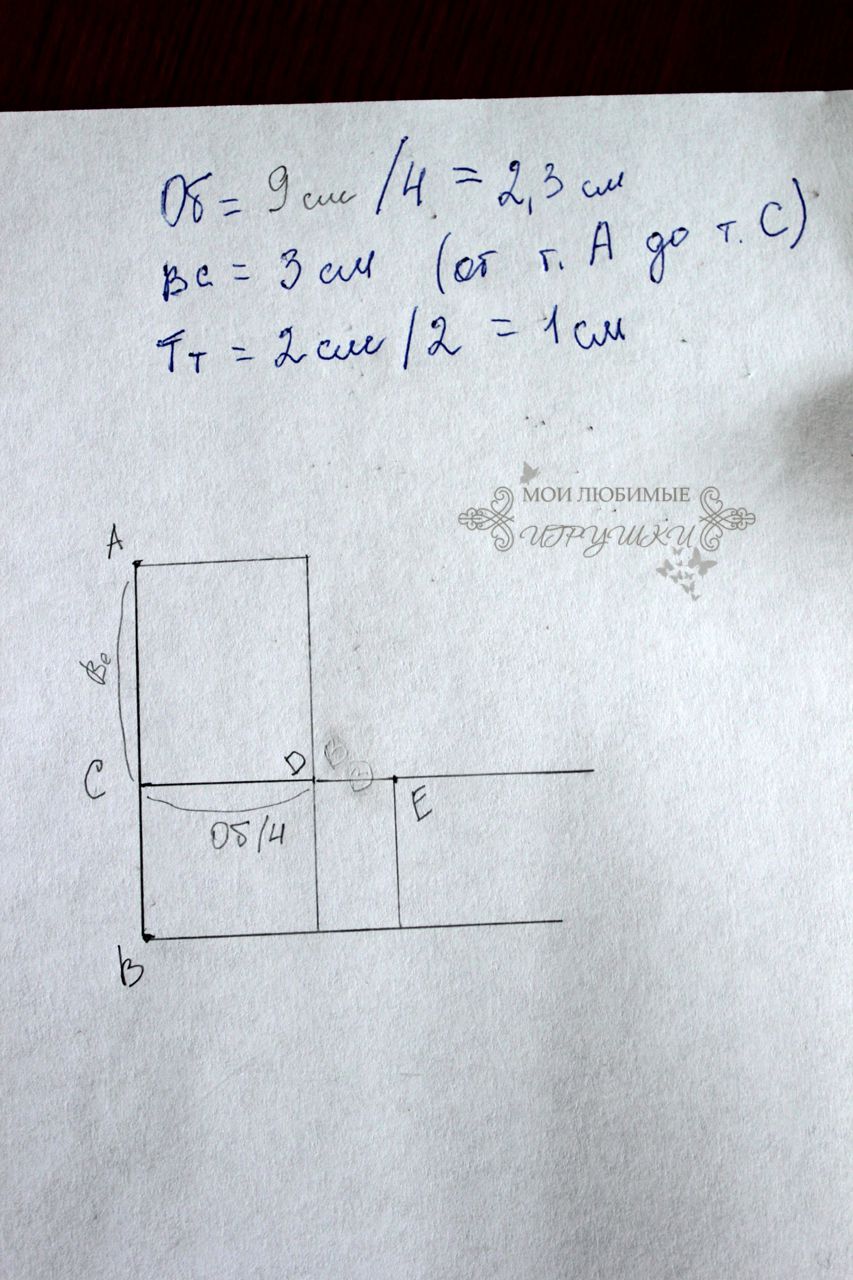 Об = 9 см /4 = 2,3 см
Вс = 3 см (от т. А до т. С)
Тт = 2 см /2 = 1 см
МОИ ЛЮБИМЫЕ
ИГРУШКИ
A
Вс
C
D
E
Об/4
B